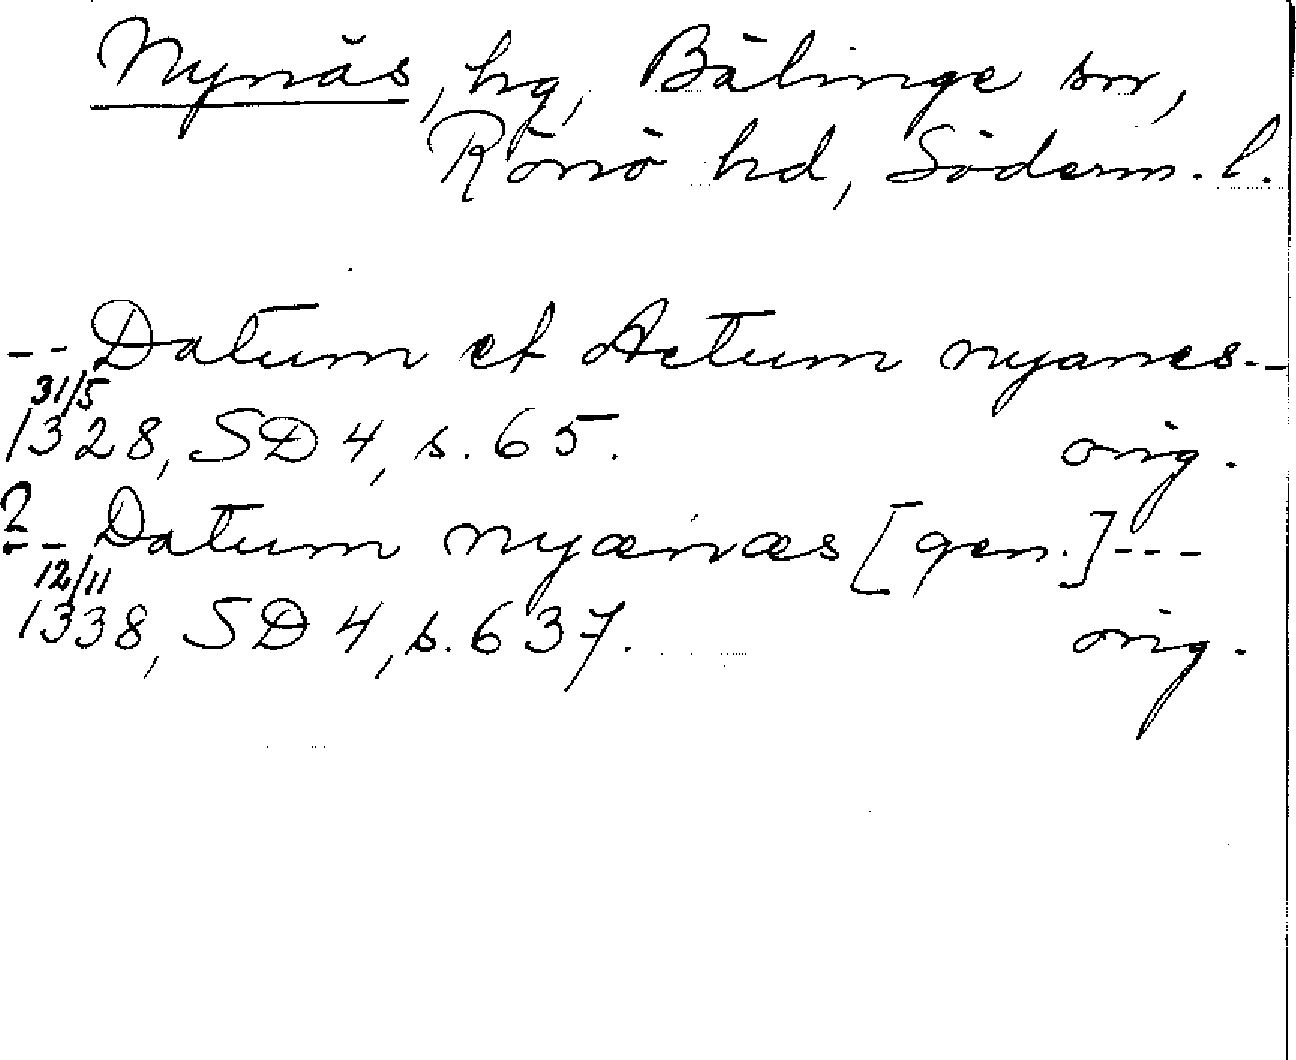 Nynäs, hg, Bälinge sn,
Rönö hd, Söderm. l.
-- Datum et Actum nyanes --
31/5
1328, SD 4, s. 65. orig.
?
-- Datum nyænæs [gen.] ---
12/11
1338, SD 4, s. 637. orig.